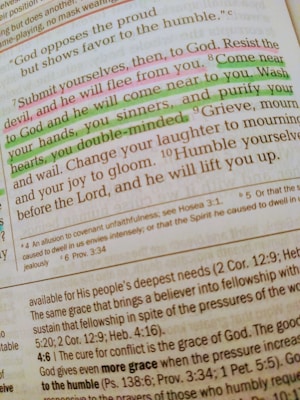 ng but does another.
ame-playing, no mask wearing
"God opposes the proud
but shows favor to the humble." c
7 Submit yourselves, then, to God. Resist the
devil, and he will flee from you. 8 Come near
to God and he will come near to you. Wash
your hands, you sinners, and purify your
hearts, you double-minded. 9 Grieve, mourn
and wail. Change your laughter to mourning
and your joy to gloom. 10 Humble yourselve
before the Lord, and he will lift you up.
a 4 An allusion to covenant unfaithfulness; see Hosea 3:1. b 5 Or that the
caused to dwell in us envies intensely; or that the Spirit he caused to dwell in u
jealously c 6 Prov. 3:34
available for His people's deepest needs (2 Cor. 12:9; Heb
The same grace that brings a believer into fellowship with
sustain that fellowship in spite of the pressures of the wo
5:20; 2 Cor. 12:9; Heb. 4:16).
4:6 | The cure for conflict is the grace of God. The good
God gives even more grace when the pressure increas
to the humble (Ps. 138:6; Prov. 3:34; 1 Pet. 5:5). Go
responsive to the prayers of those who humbly reque